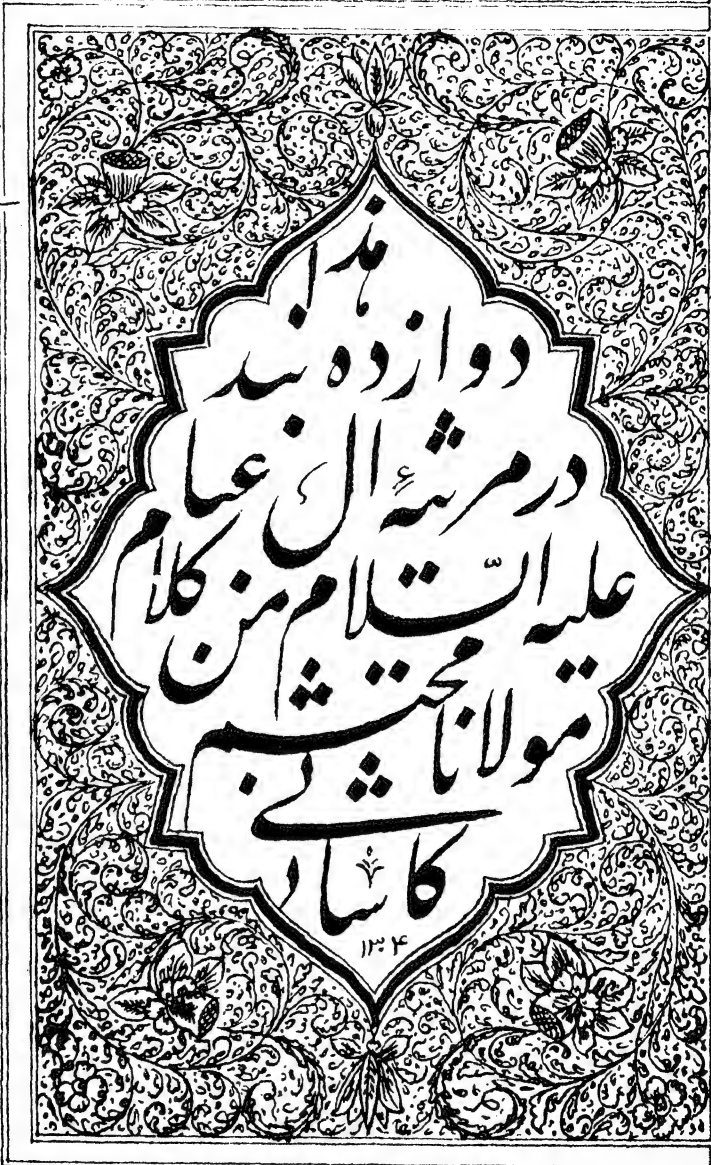 هذا
دوازده بند
در مرثیهٔ آل عبا
علیه السّلام من کلام
مولانا محتشم
کاشانی
۱۳۰۴